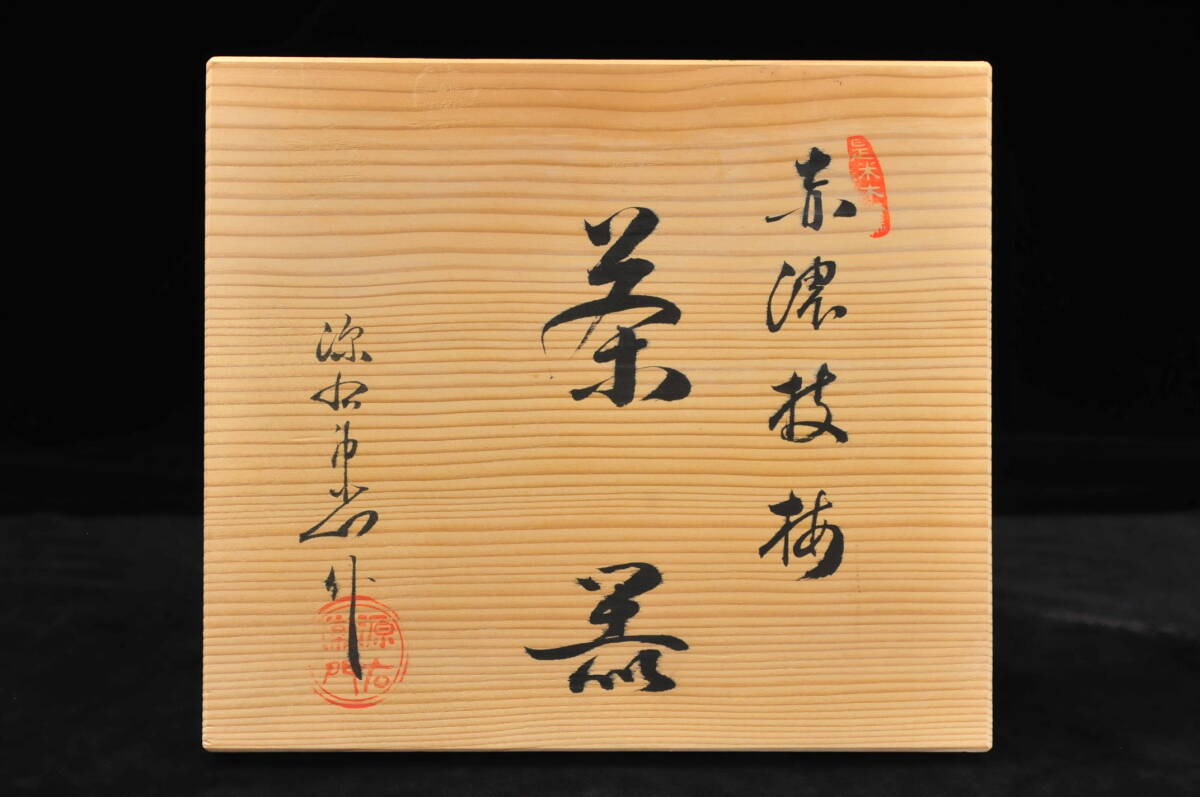 赤濃枝梅
茶器
源右衛門作
源右衛門